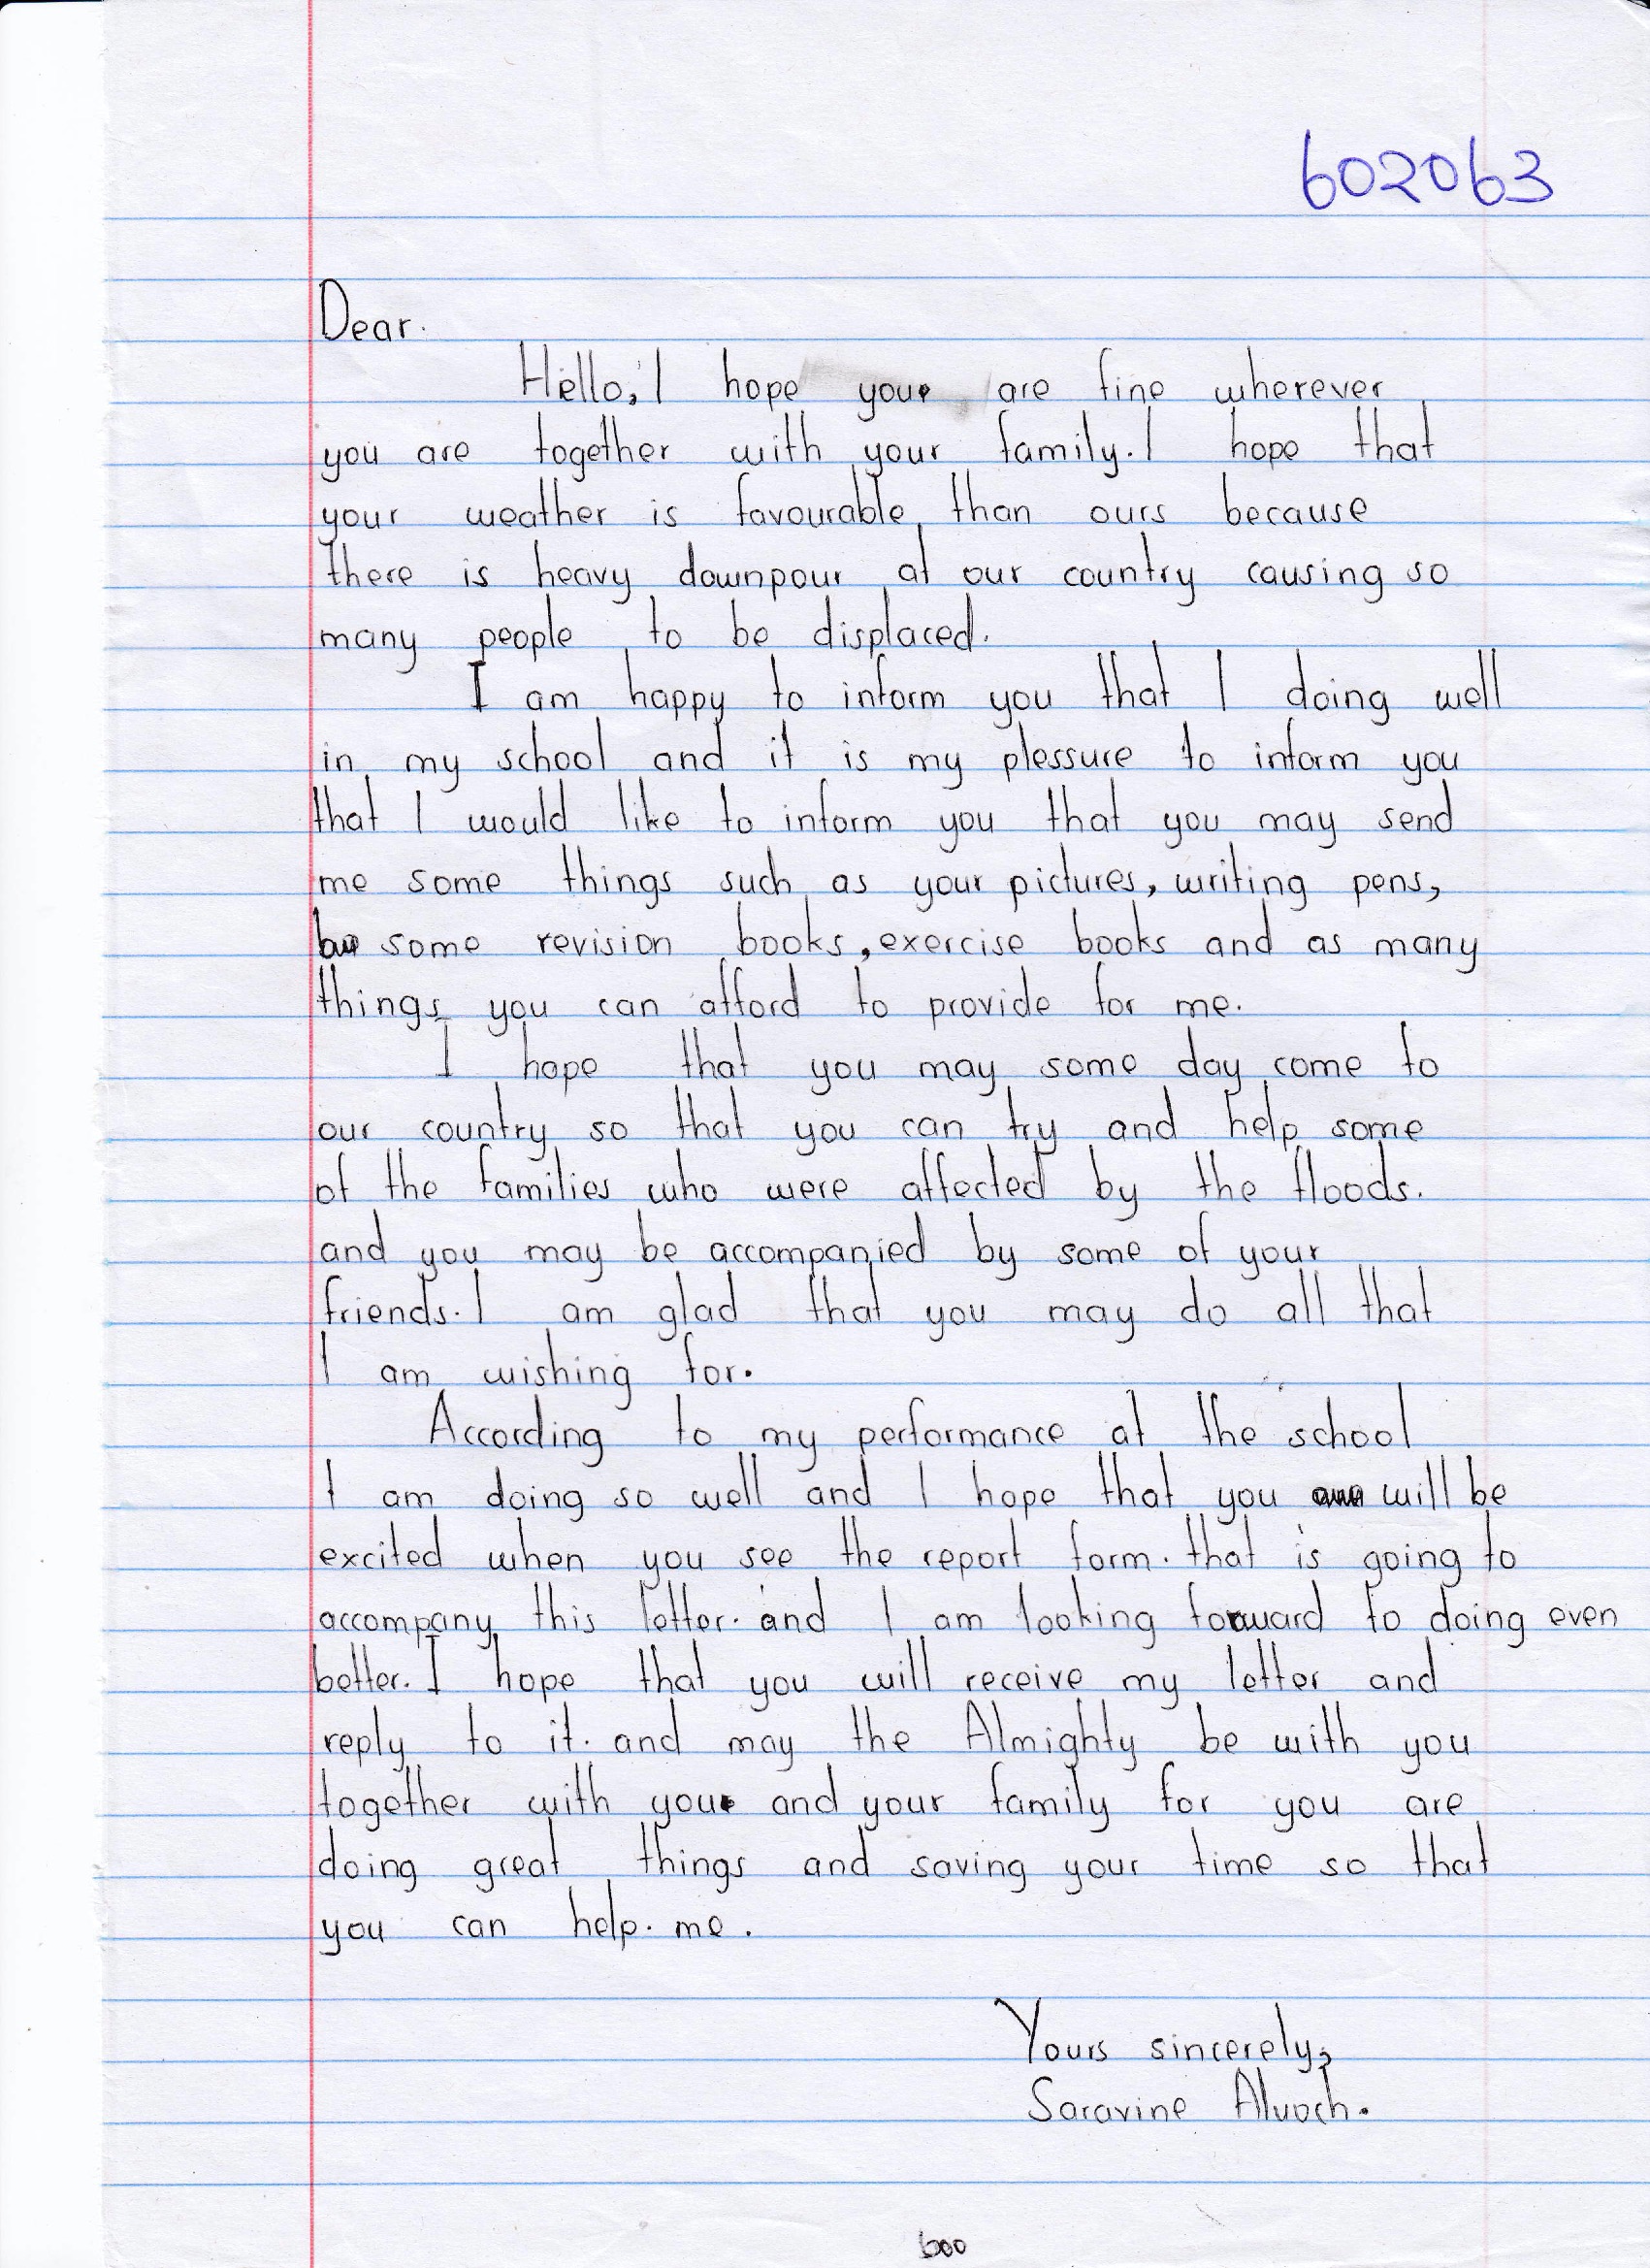 602063
Dear.
Hello, I hope you are fine wherever
you are together with your family. I hope that
your weather is favourable than ours because
there is heavy downpour at our country causing so
many people to be displaced.
I am happy to inform you that I doing well
in my school and it is my plessure to inform you
that I would like to inform you that you may send
me some things such as your pictures, writing pens,
some revision books, exercise books and as many
things you can afford to provide for me.
I hope that you may some day come to
our country so that you can try and help some
of the families who were affected by the floods.
and you may be accompanied by some of your
friends. I am glad that you may do all that
I am wishing for.
According to my performance at the school
I am doing so well and I hope that you will be
excited when you see the report form. that is going to
accompany this letter. and I am looking forward to doing even
better. I hope that you will receive my letter and
reply to it. and may the Almighty be with you
together with you and your family for you are
doing great things and saving your time so that
you can help. me.
Yours sincerely,
Saravine Aluoch.
600